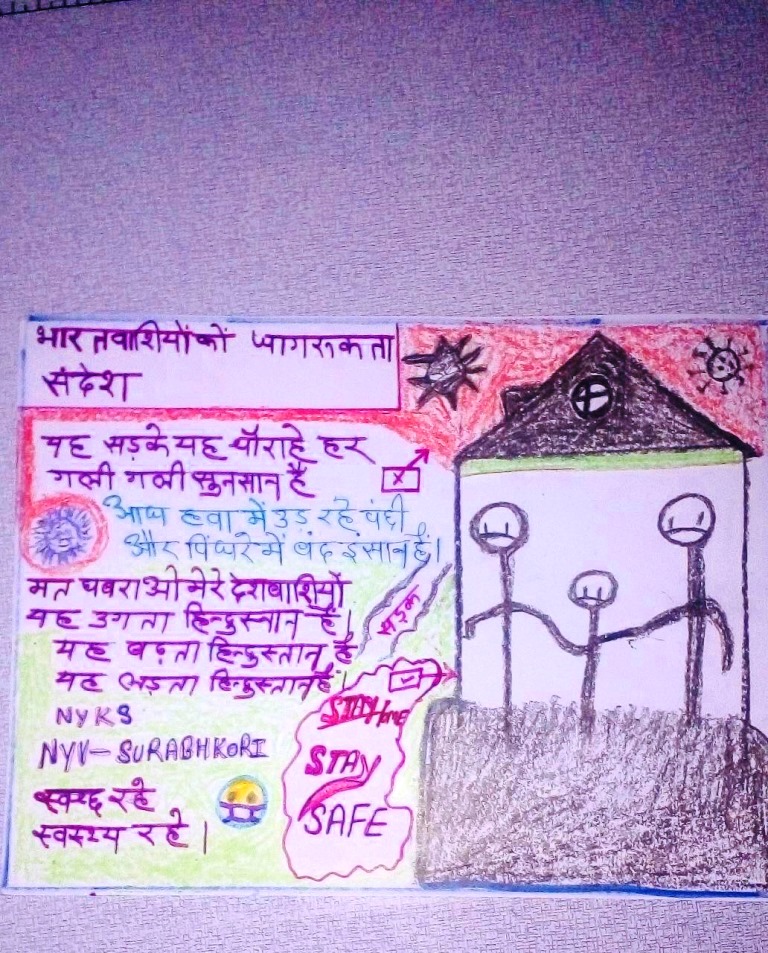 भारतवाशियों को जागरूकता
संदेश
यह सड़के यह चौराहे हर
गली गली सुनसान है
आज हवा में उड़ रहे पंछी
और पिंजरे में बंद इंसान है।
मत घबराओ मेरे देशवाशियों
यह उगता हिन्दुस्तान है।
यह बढ़ता हिन्दुस्तान है
यह लड़ता हिन्दुस्तान है।
सड़क
NYKS
NYV-SURABHKORI
स्वच्छ रहे
स्वस्थ्य रहे।
STAY Home
STAY
SAFE